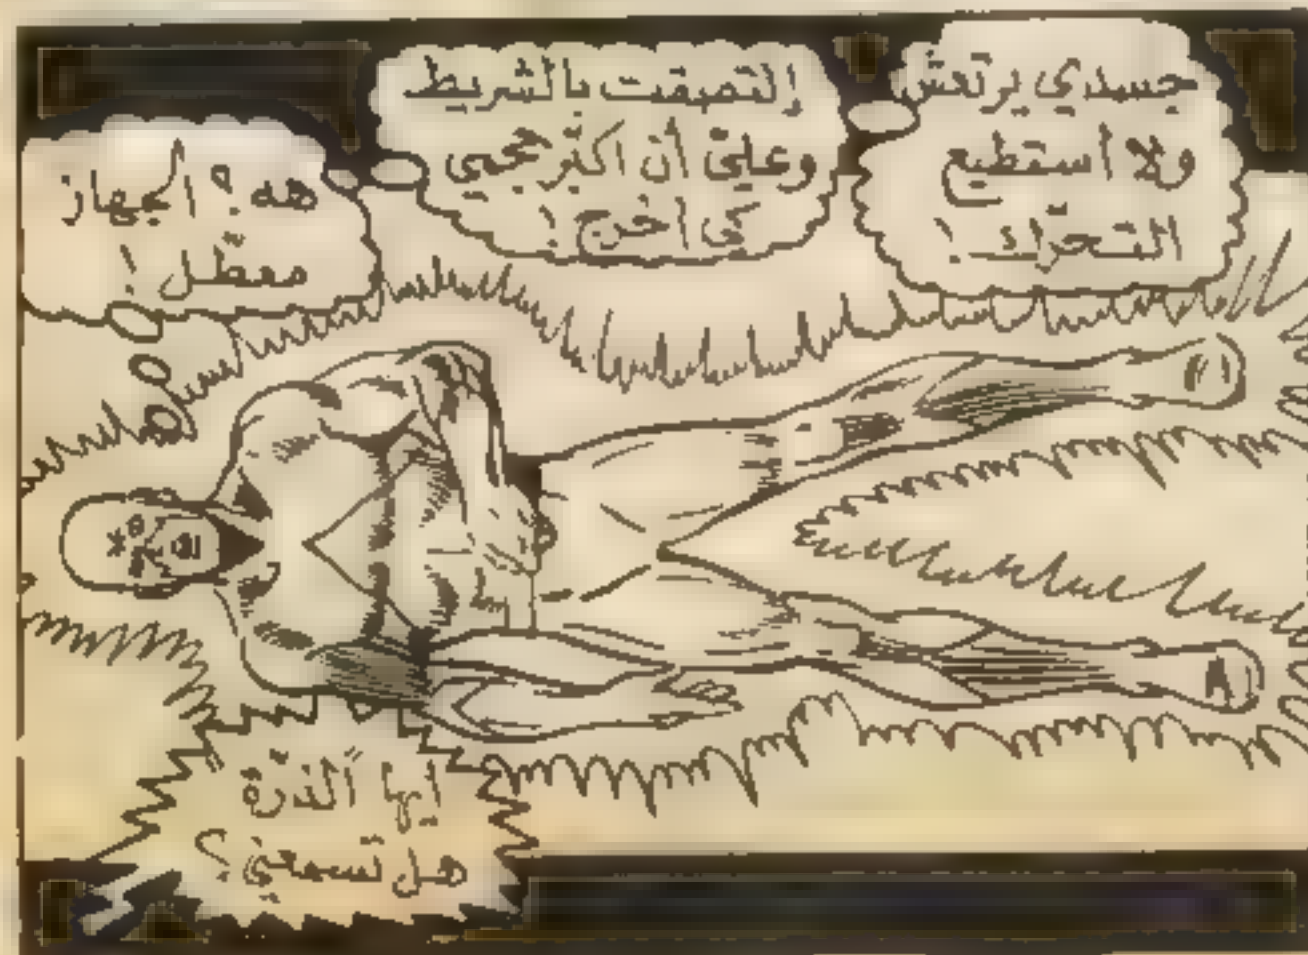 جسدي يرتعش
ولا أستطيع
التحرّك !
إلتصقت بالشريط
وعليّ أن أكبّر حجمي
كي أخرج !
هه ؟ الجهاز
معطّل !
ايها الذرّة
هل تسمعني ؟